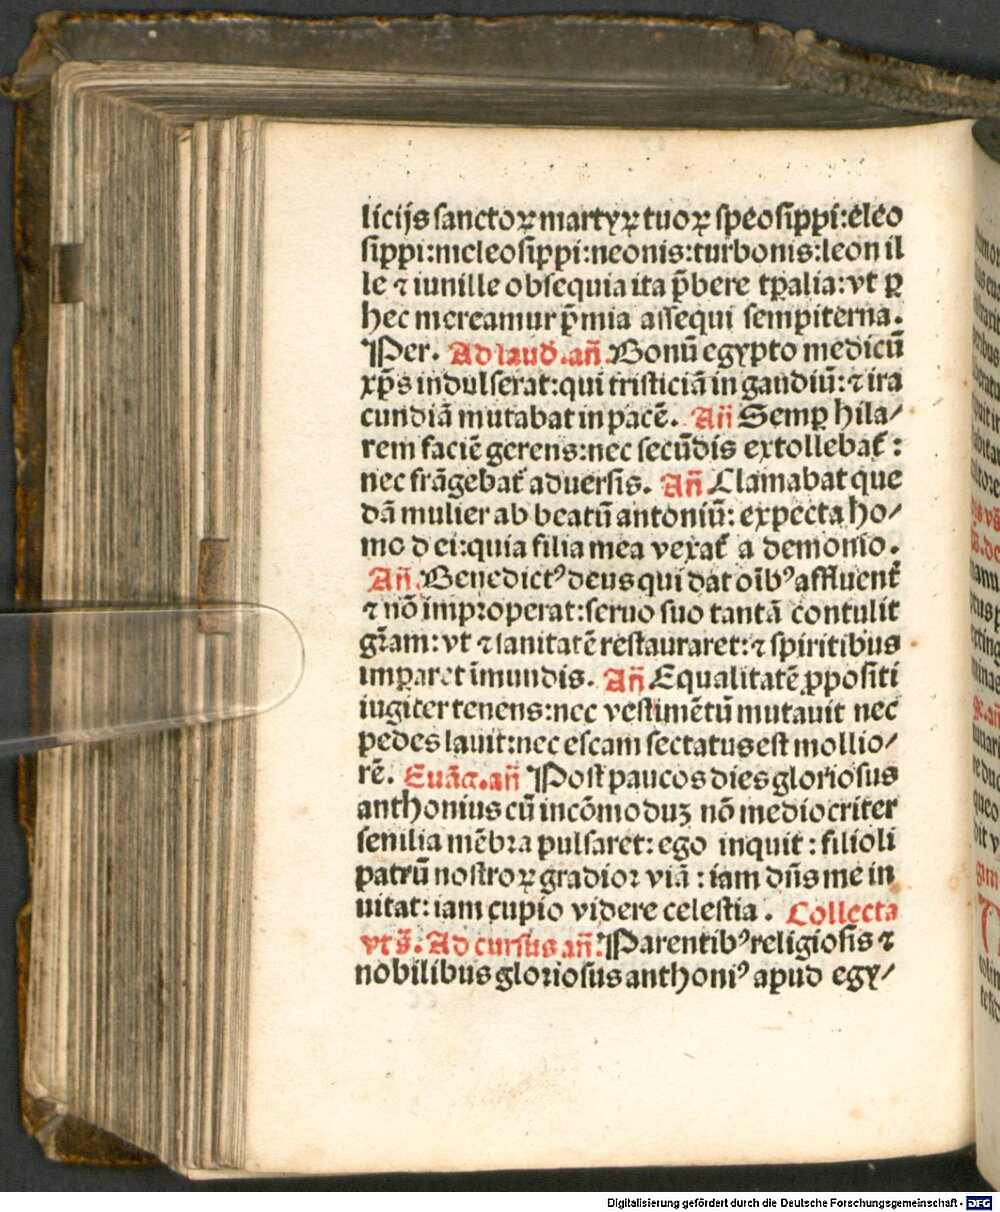 licijs sanctoꝝ martyꝝ tuoꝝ speosippi: eleo
sippi: meleosippi: neonis: turbonis: leonil
le ⁊ iunille obsequia ita p̄bere tp̄alia: vt ꝑ
hec mereamur p̄mia assequi sempiterna.
Per. Ad laud̄. añ. Bonū egypto medicū
xp̄s indulserat: qui tristiciā in gaudiū: ⁊ ira
cundiā mutabat in pacē. Añ Semꝑ hila/
rem faciē gerens: nec secūdis extollebat̄:
nec frāgebat̄ aduersis. Añ. Clamabat que
dā mulier ab beatū antoniū: expecta ho/
mo dei: quia filia mea vexat̄ a demonio.
Añ. Benedictꝰ deus qui dat oībꝰ affluent̄
⁊ nō improperat: seruo suo tantā contulit
gr̄am: vt ⁊ sanitatē restauraret: ⁊ spiritibus
imꝑaret īmundis. Añ. Equalitatē ꝓpositi
iugiter tenens: nec vestimētū mutauit nec
pedes lauit: nec escam sectatus est mollio/
rē. Euāg. añ Post paucos dies gloriosus
anthonius cū incōmoduꝫ nō mediocriter
senilia mēbra pulsaret: ego inquit: filioli
patrū nostroꝝ gradior viā: iam dn̄s me in
uitat: iam cupio videre celestia. Collecta
vt s̄. Ad cursus añ. Parentibꝰ religiosis ⁊
nobilibus gloriosus anthoniꝰ apud egy/
Digitalisierung gefördert durch die Deutsche Forschungsgemeinschaft - DFG